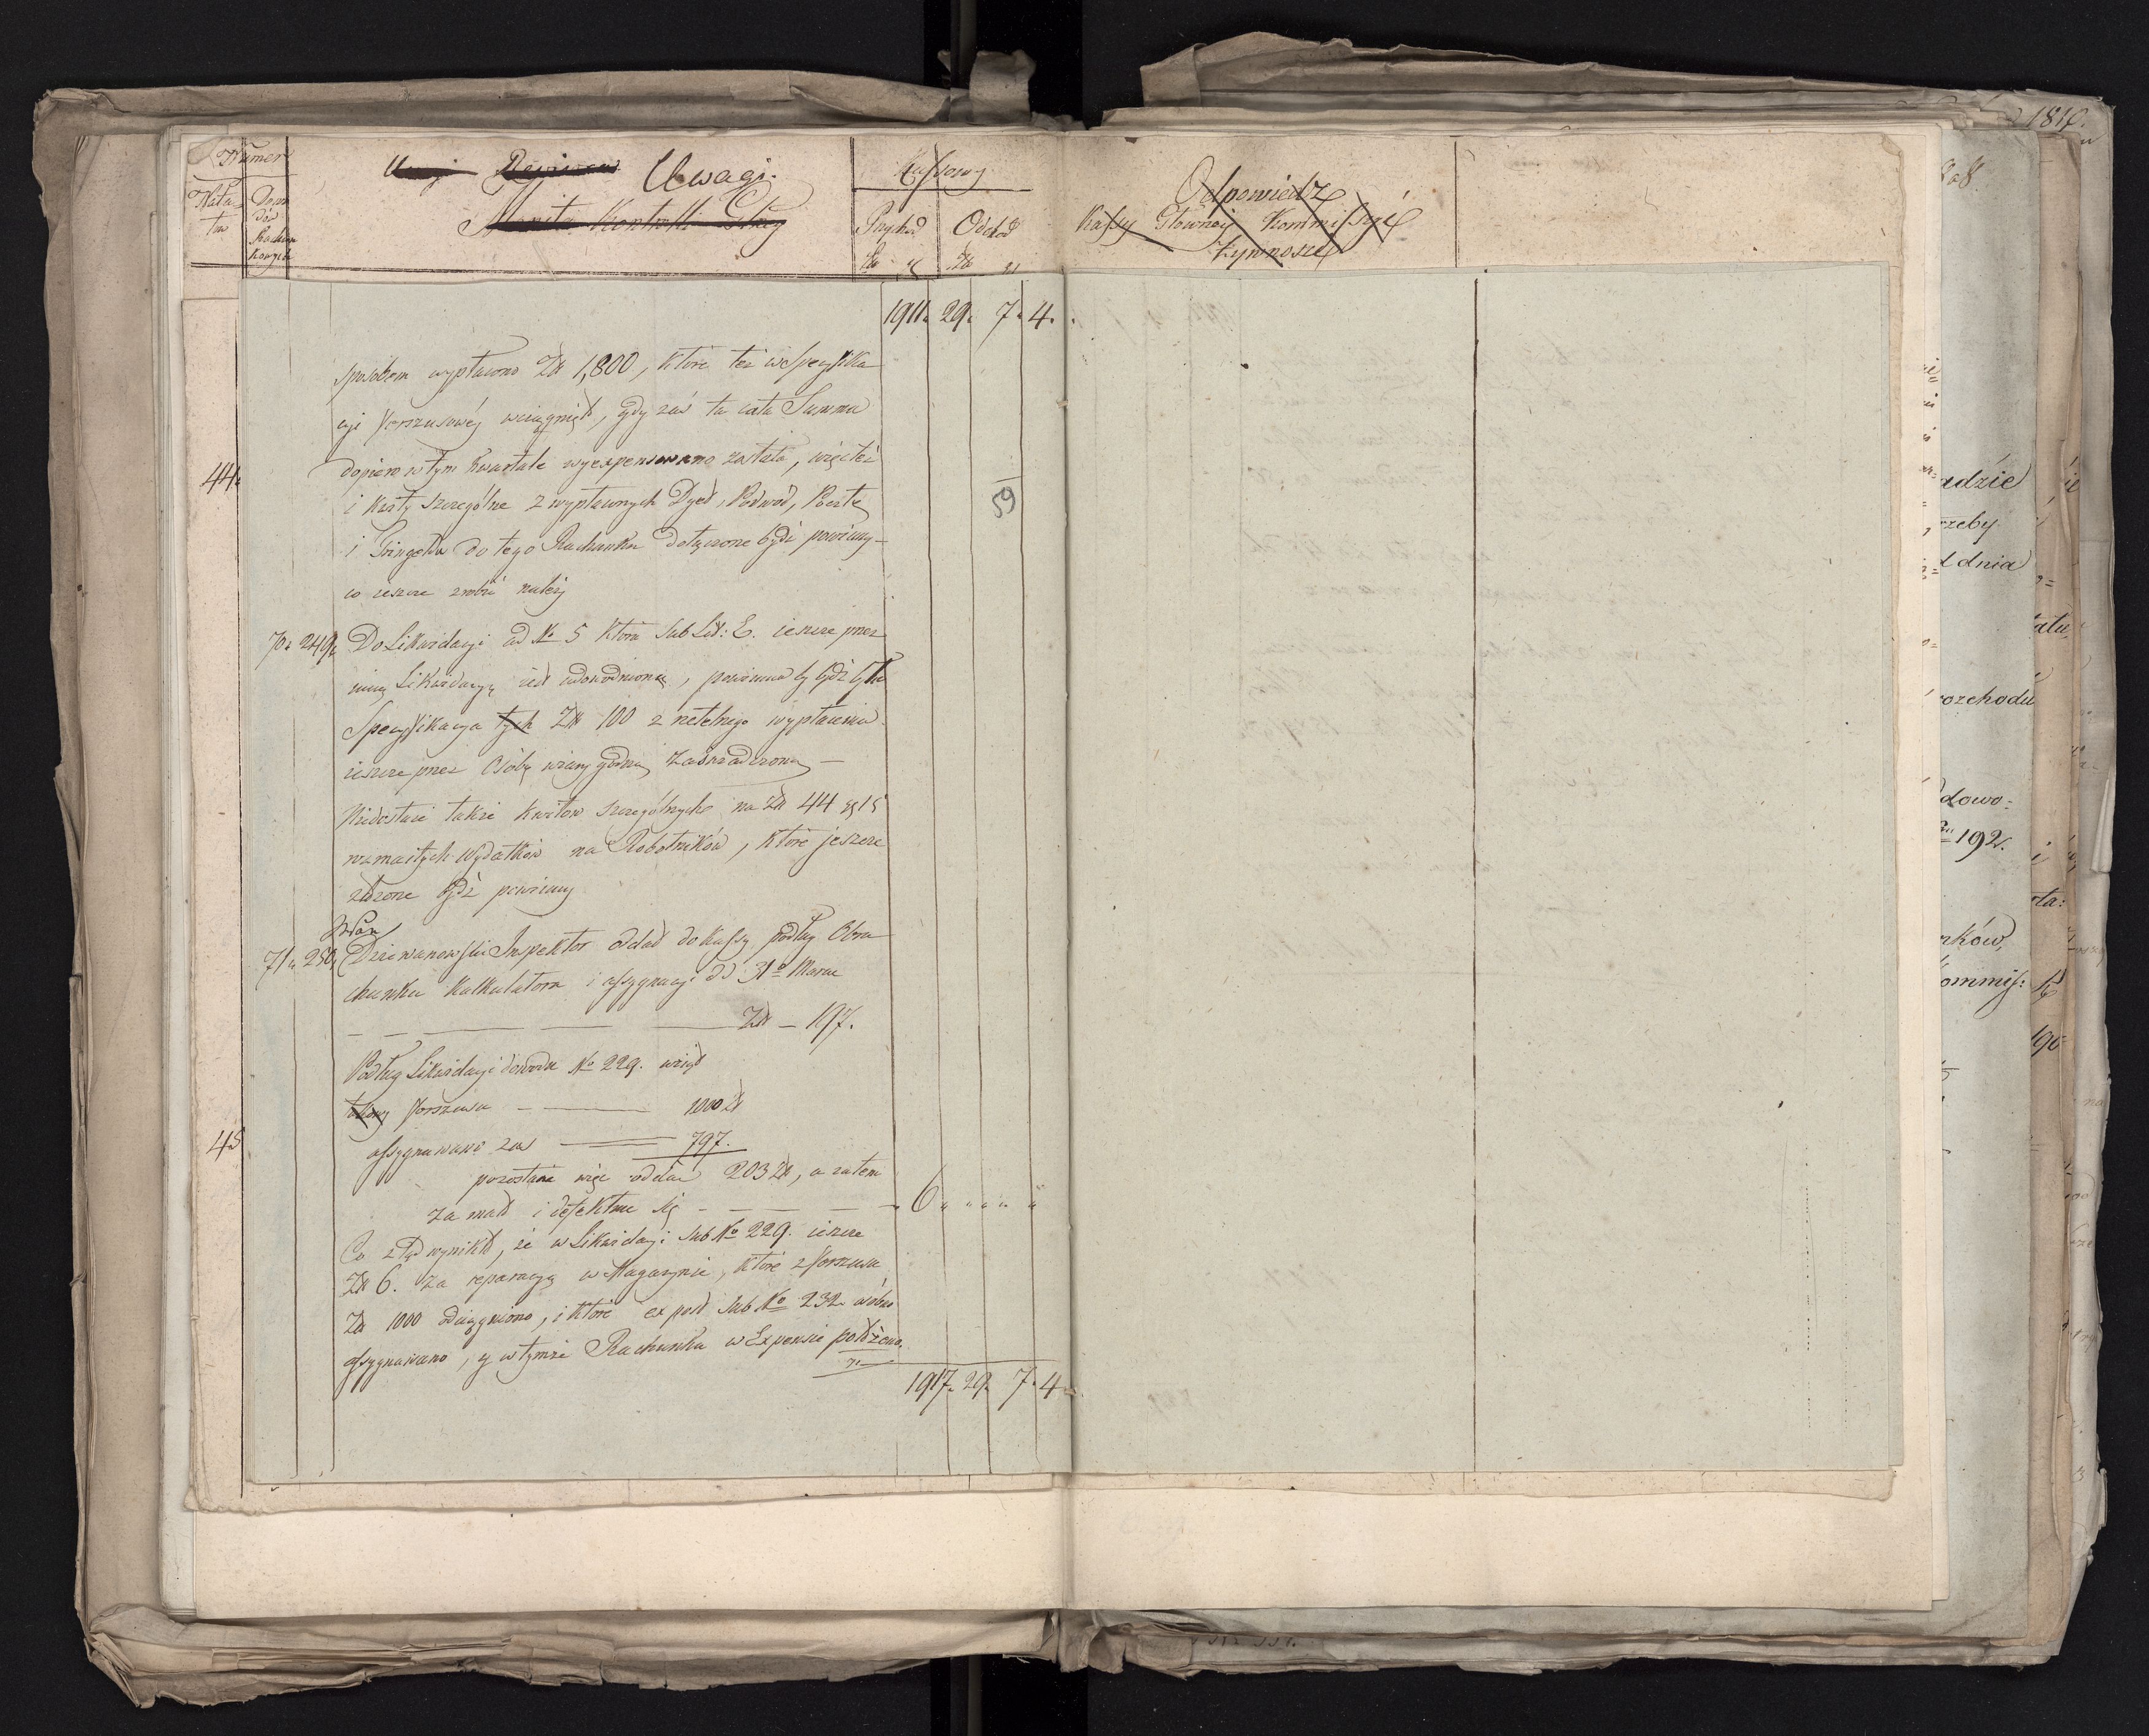 Numer
Nota
tów
Dowo
dów
Rachun
kowych
Uwagi.
Monita Kontroli Głney
Kassowy
Przychód
Odchód
Zł gr Zł gr
Odpowiedz
Kassy Głowney Kommissyi
Żywności
1911. 29. 7. 4.
sposobem wypłacono Zł 1,800, które też w Specyfika
cyi Forszusowéy wciągnięł, gdy zaś ta cała Summa
44.
dopiero w tym Kwartale wyexpensowaną została, więc też
i kwity szczególne z wypłaconych Dyet, Podwód, Poczty
59
i Tringelda do tego Rachunku dołączone bydź powinny –
co ieszcze zrobić należy
70. 249. Do Likwidacyi ad No 5 która sub Lit: E. ieszcze przez
inną Likwidacyą iest udowodnioną, powinna by bydź
Specyfikacya tych Zł 100 z rzetelnego wypłacenia
ieszcze przez Osobę wiary godną zaświadczoną –
Niedostaie także kwitow szczególnych na Zł 44 gr 15
rozmaitych Wydatków na Robotników, które jeszcze
złożone bydź powinny
71. 250. JPan
Dziewanowski Inspektor oddał do Kassy podług Obra
chunku Kalkulatora i assygnacyi dd 31o Marca
Zł – 197.
Podług Likwidacyi dowodu No 229. wziął
Forszusu – 1000 Zł
45
assygnowano zaś 797.
pozostaie więc oddać 203 Zł, a zatem
za mało i defektuie się – – – – 6. „ „ „ „
Co ztąd wynikło, że w Likwidacyi sub No 229. ieszcze
Zł 6. za reparacyą w Magazynie, które z Forszusu
Zł 1000 odciągniono, i które ex post sub No 232
assygnowano, y w tymże Rachunku w Expensie położono.
1917. 29. 7. 4
1810.
adzie
rzeby
dnia
rozchodu
dowo:
192.
rków,
ommis:
196